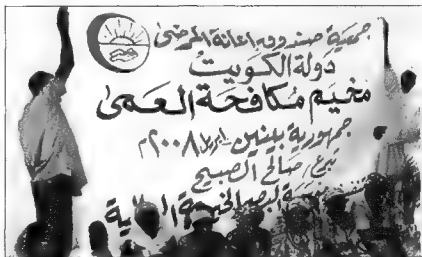 جمعية صندوق اعانة المرضى
دولة الكويت
مخيم مكافحة العمى
جمهورية بينين إبريل ٢٠٠٨م
تبرع/ صالح الصبيح
لبصر الخيرية